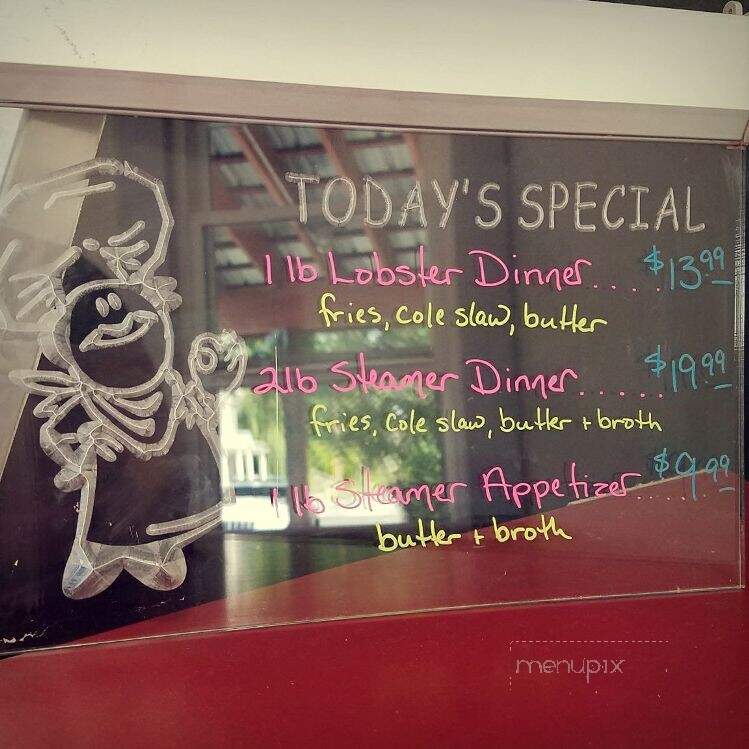 TODAY'S SPECIAL
1 lb Lobster Dinner..... $13.99
fries, cole slaw, butter
2lb Steamer Dinner...... $19.99
fries, cole slaw, butter + broth
1 lb Steamer Appetizer..... $9.99
butter + broth
menupix